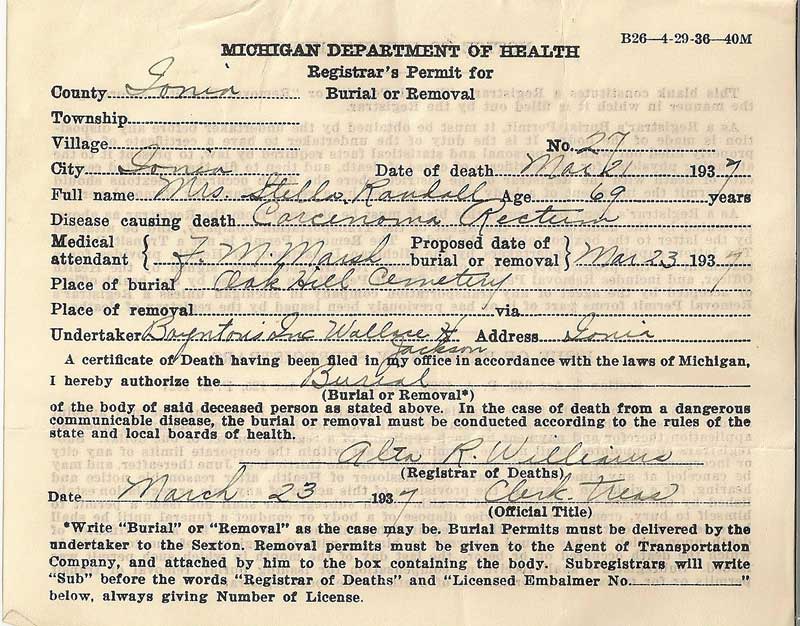 B26—4-29-36—40M
MICHIGAN DEPARTMENT OF HEALTH
Registrar's Permit for
Burial or Removal
County Ionia
Township
Village
No. 27
City Ionia Date of death Mar 21 1937
Full name Mrs. Stella Randall Age 69 years
Disease causing death Carcenoma Rectum
Medical attendant } F. M. Marsh Proposed date of burial or removal } Mar 23 1937
Place of burial Oak Hill Cemetery
Place of removal via
Undertaker Boyntons Inc Wallace H Jackson Address Ionia
A certificate of Death having been filed in my office in accordance with the laws of Michigan,
I hereby authorize the Burial
(Burial or Removal*)
of the body of said deceased person as stated above. In the case of death from a dangerous
communicable disease, the burial or removal must be conducted according to the rules of the
state and local boards of health.
Alta R. Williams
(Registrar of Deaths)
Date March 23 1937 Clerk-Treas
(Official Title)
*Write "Burial" or "Removal" as the case may be. Burial Permits must be delivered by the
undertaker to the Sexton. Removal permits must be given to the Agent of Transportation
Company, and attached by him to the box containing the body. Subregistrars will write
"Sub" before the words "Registrar of Deaths" and "Licensed Embalmer No. "
below, always giving Number of License.